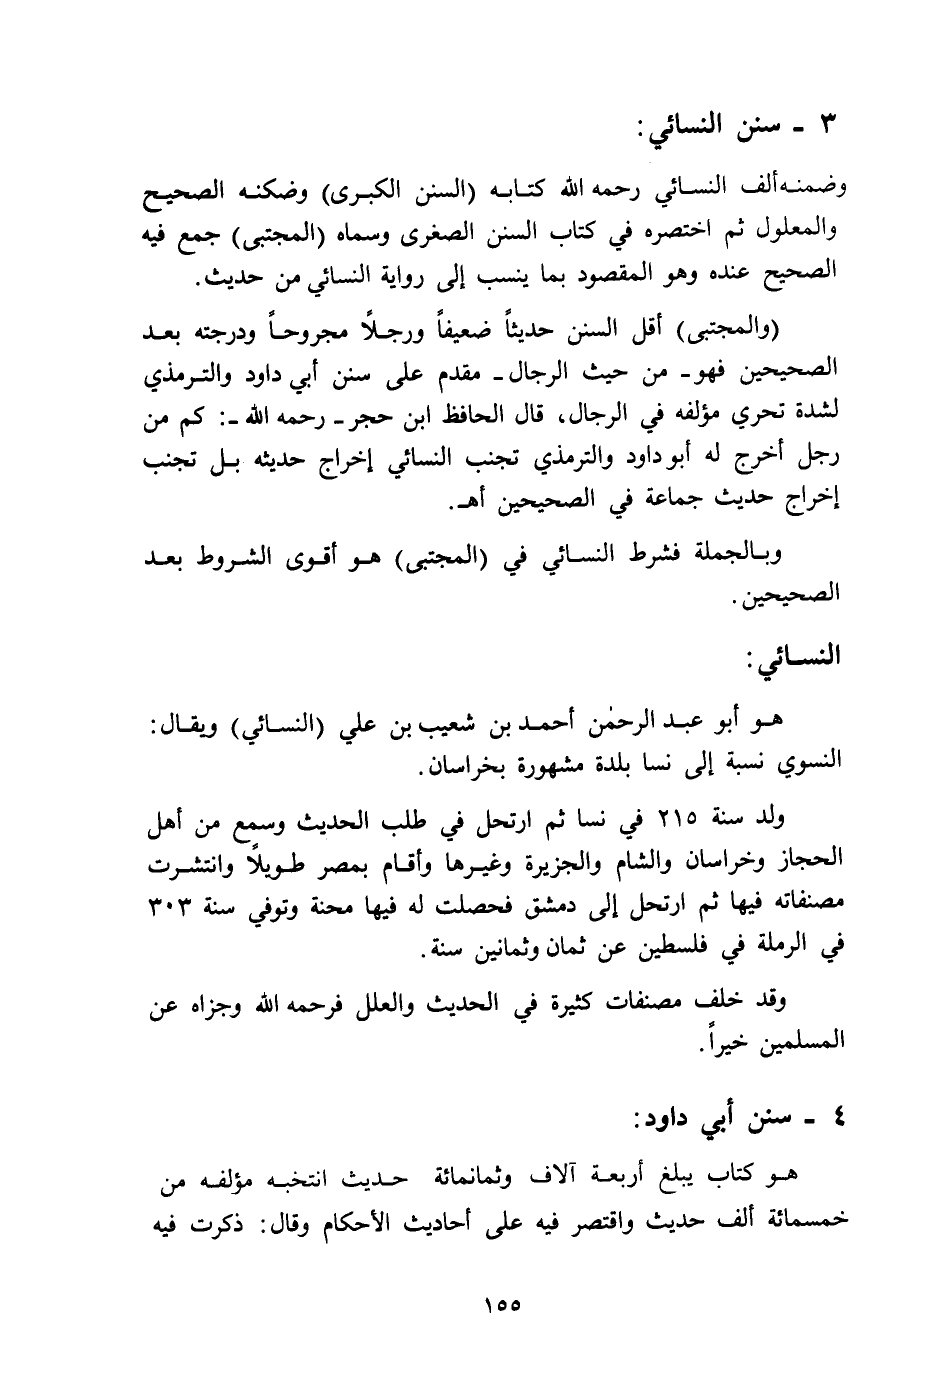 ٣ ـ سنن النسائي:
وضمنه ألف النسائي رحمه الله كتابه (السنن الكبرى) وضكنه الصحيح
والمعلول ثم اختصره في كتاب السنن الصغرى وسماه (المجتبى) جمع فيه
الصحيح عنده وهو المقصود بما ينسب إلى رواية النسائي من حديث.
(والمجتبى) أقل السنن حديثاً ضعيفاً ورجلاً مجروحاً ودرجته بعد
الصحيحين فهو ـ من حيث الرجال ـ مقدم على سنن أبي داود والترمذي
لشدة تحري مؤلفه في الرجال، قال الحافظ ابن حجر ـ رحمه الله ـ: كم من
رجل أخرج له أبو داود والترمذي تجنب النسائي إخراج حديثه بل تجنب
إخراج حديث جماعة في الصحيحين أهـ.
وبالجملة فشرط النسائي في (المجتبى) هو أقوى الشروط بعد
الصحيحين.
النسائي:
هو أبو عبد الرحمٰن أحمد بن شعيب بن علي (النسائي) ويقال:
النسوي نسبة إلى نسا بلدة مشهورة بخراسان.
ولد سنة ٢١٥ في نسا ثم ارتحل في طلب الحديث وسمع من أهل
الحجاز وخراسان والشام والجزيرة وغيرها وأقام بمصر طويلاً وانتشرت
مصنفاته فيها ثم ارتحل إلى دمشق فحصلت له فيها محنة وتوفي سنة ٣٠٣
في الرملة في فلسطين عن ثمان وثمانين سنة.
وقد خلف مصنفات كثيرة في الحديث والعلل فرحمه الله وجزاه عن
المسلمين خيراً.
٤ ـ سنن أبي داود:
هو كتاب يبلغ أربعة آلاف وثمانمائة حديث انتخبه مؤلفه من
خمسمائة ألف حديث واقتصر فيه على أحاديث الأحكام وقال: ذكرت فيه
١٥٥